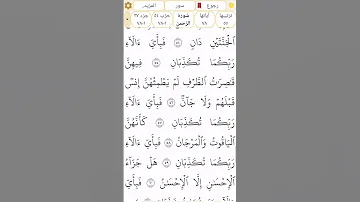 رجوع سور المزيد
ترتيبها ٥٥ آياتها ٧٨ سورة الرحمن حزب ٥٤ جزء ٢٧
ٱلْجَنَّتَيْنِ دَانٍ ٥٤ فَبِأَىِّ ءَالَآءِ
رَبِّكُمَا تُكَذِّبَانِ ٥٥ فِيهِنَّ
قَٰصِرَٰتُ ٱلطَّرْفِ لَمْ يَطْمِثْهُنَّ إِنسٌ
قَبْلَهُمْ وَلَا جَآنٌّ ٥٦ فَبِأَىِّ ءَالَآءِ
رَبِّكُمَا تُكَذِّبَانِ ٥٧ كَأَنَّهُنَّ
ٱلْيَاقُوتُ وَٱلْمَرْجَانُ ٥٨ فَبِأَىِّ ءَالَآءِ
رَبِّكُمَا تُكَذِّبَانِ ٥٩ هَلْ جَزَآءُ
ٱلْإِحْسَٰنِ إِلَّا ٱلْإِحْسَٰنُ ٦٠ فَبِأَىِّ